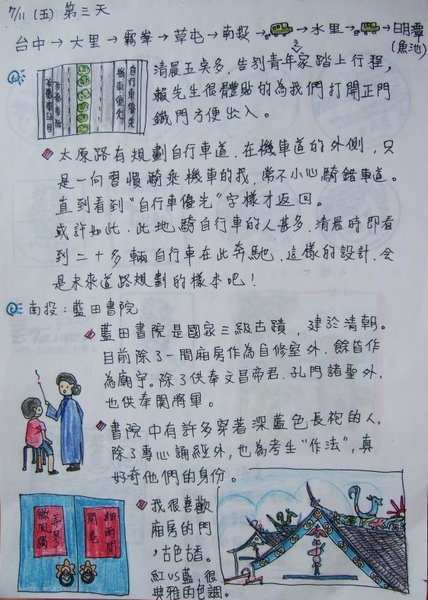 7/11 (五) 第三天
台中→大里→霧峯→草屯→南投→ → 水里→ →日月潭
(魚池)
自行車優先
機車優先
清晨五奌多,告別青年家踏上行程,
賴先生很體貼的為我們打開正門
鐵門方便出入。
太原路有規劃自行車道,在機車道的外側,只
是一向習慣騎乘機車的我,常不小心騎錯車道。
直到看到"自行車優先"字樣才返回。
或許如此,此地騎自行車的人甚多,清晨時即看
到二十多輛自行車在此奔馳,這樣的設計,會
是未來道路規劃的樣本吧!
南投:藍田書院
藍田書院是國家三級古蹟,建於清朝。
目前除了一間廂房作為自修室外,餘皆作
為廟宇。除了供奉文昌帝君、孔門諸聖外,
也供奉關將軍。
書院中有許多穿著深藍色長袍的人,
除了專心誦經外,也為考生"作法",真
好奇他們的身份。
我很喜歡
廂房的門
,古色古香。
紅VS藍,很
典雅的色調。